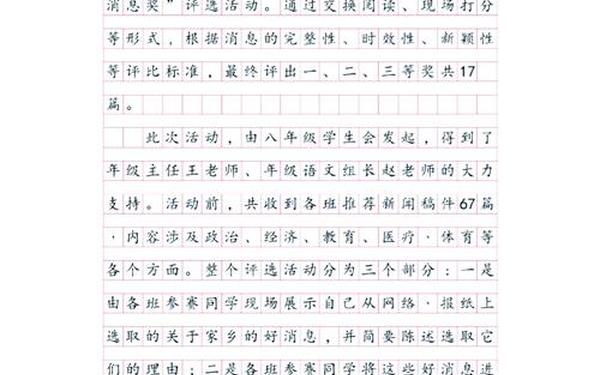 消息奖”评选活动。通过交换阅读、现场打分
等形式，根据消息的完整性、时效性、新颖性
等评比标准，最终评出一、二、三等奖共17
篇。
此次活动，由八年级学生会发起，得到了
年级主任王老师、年级语文组长赵老师的大力
支持。活动前，共收到各班推荐新闻稿件67篇
，内容涉及政治、经济、教育、医疗、体育等
各个方面。整个评选活动分为三个部分：一是
由各班参赛同学现场展示自己从网络、报纸上
选取的关于家乡的好消息，并简要陈述选取它
们的理由；二是各班参赛同学将这些好消息进